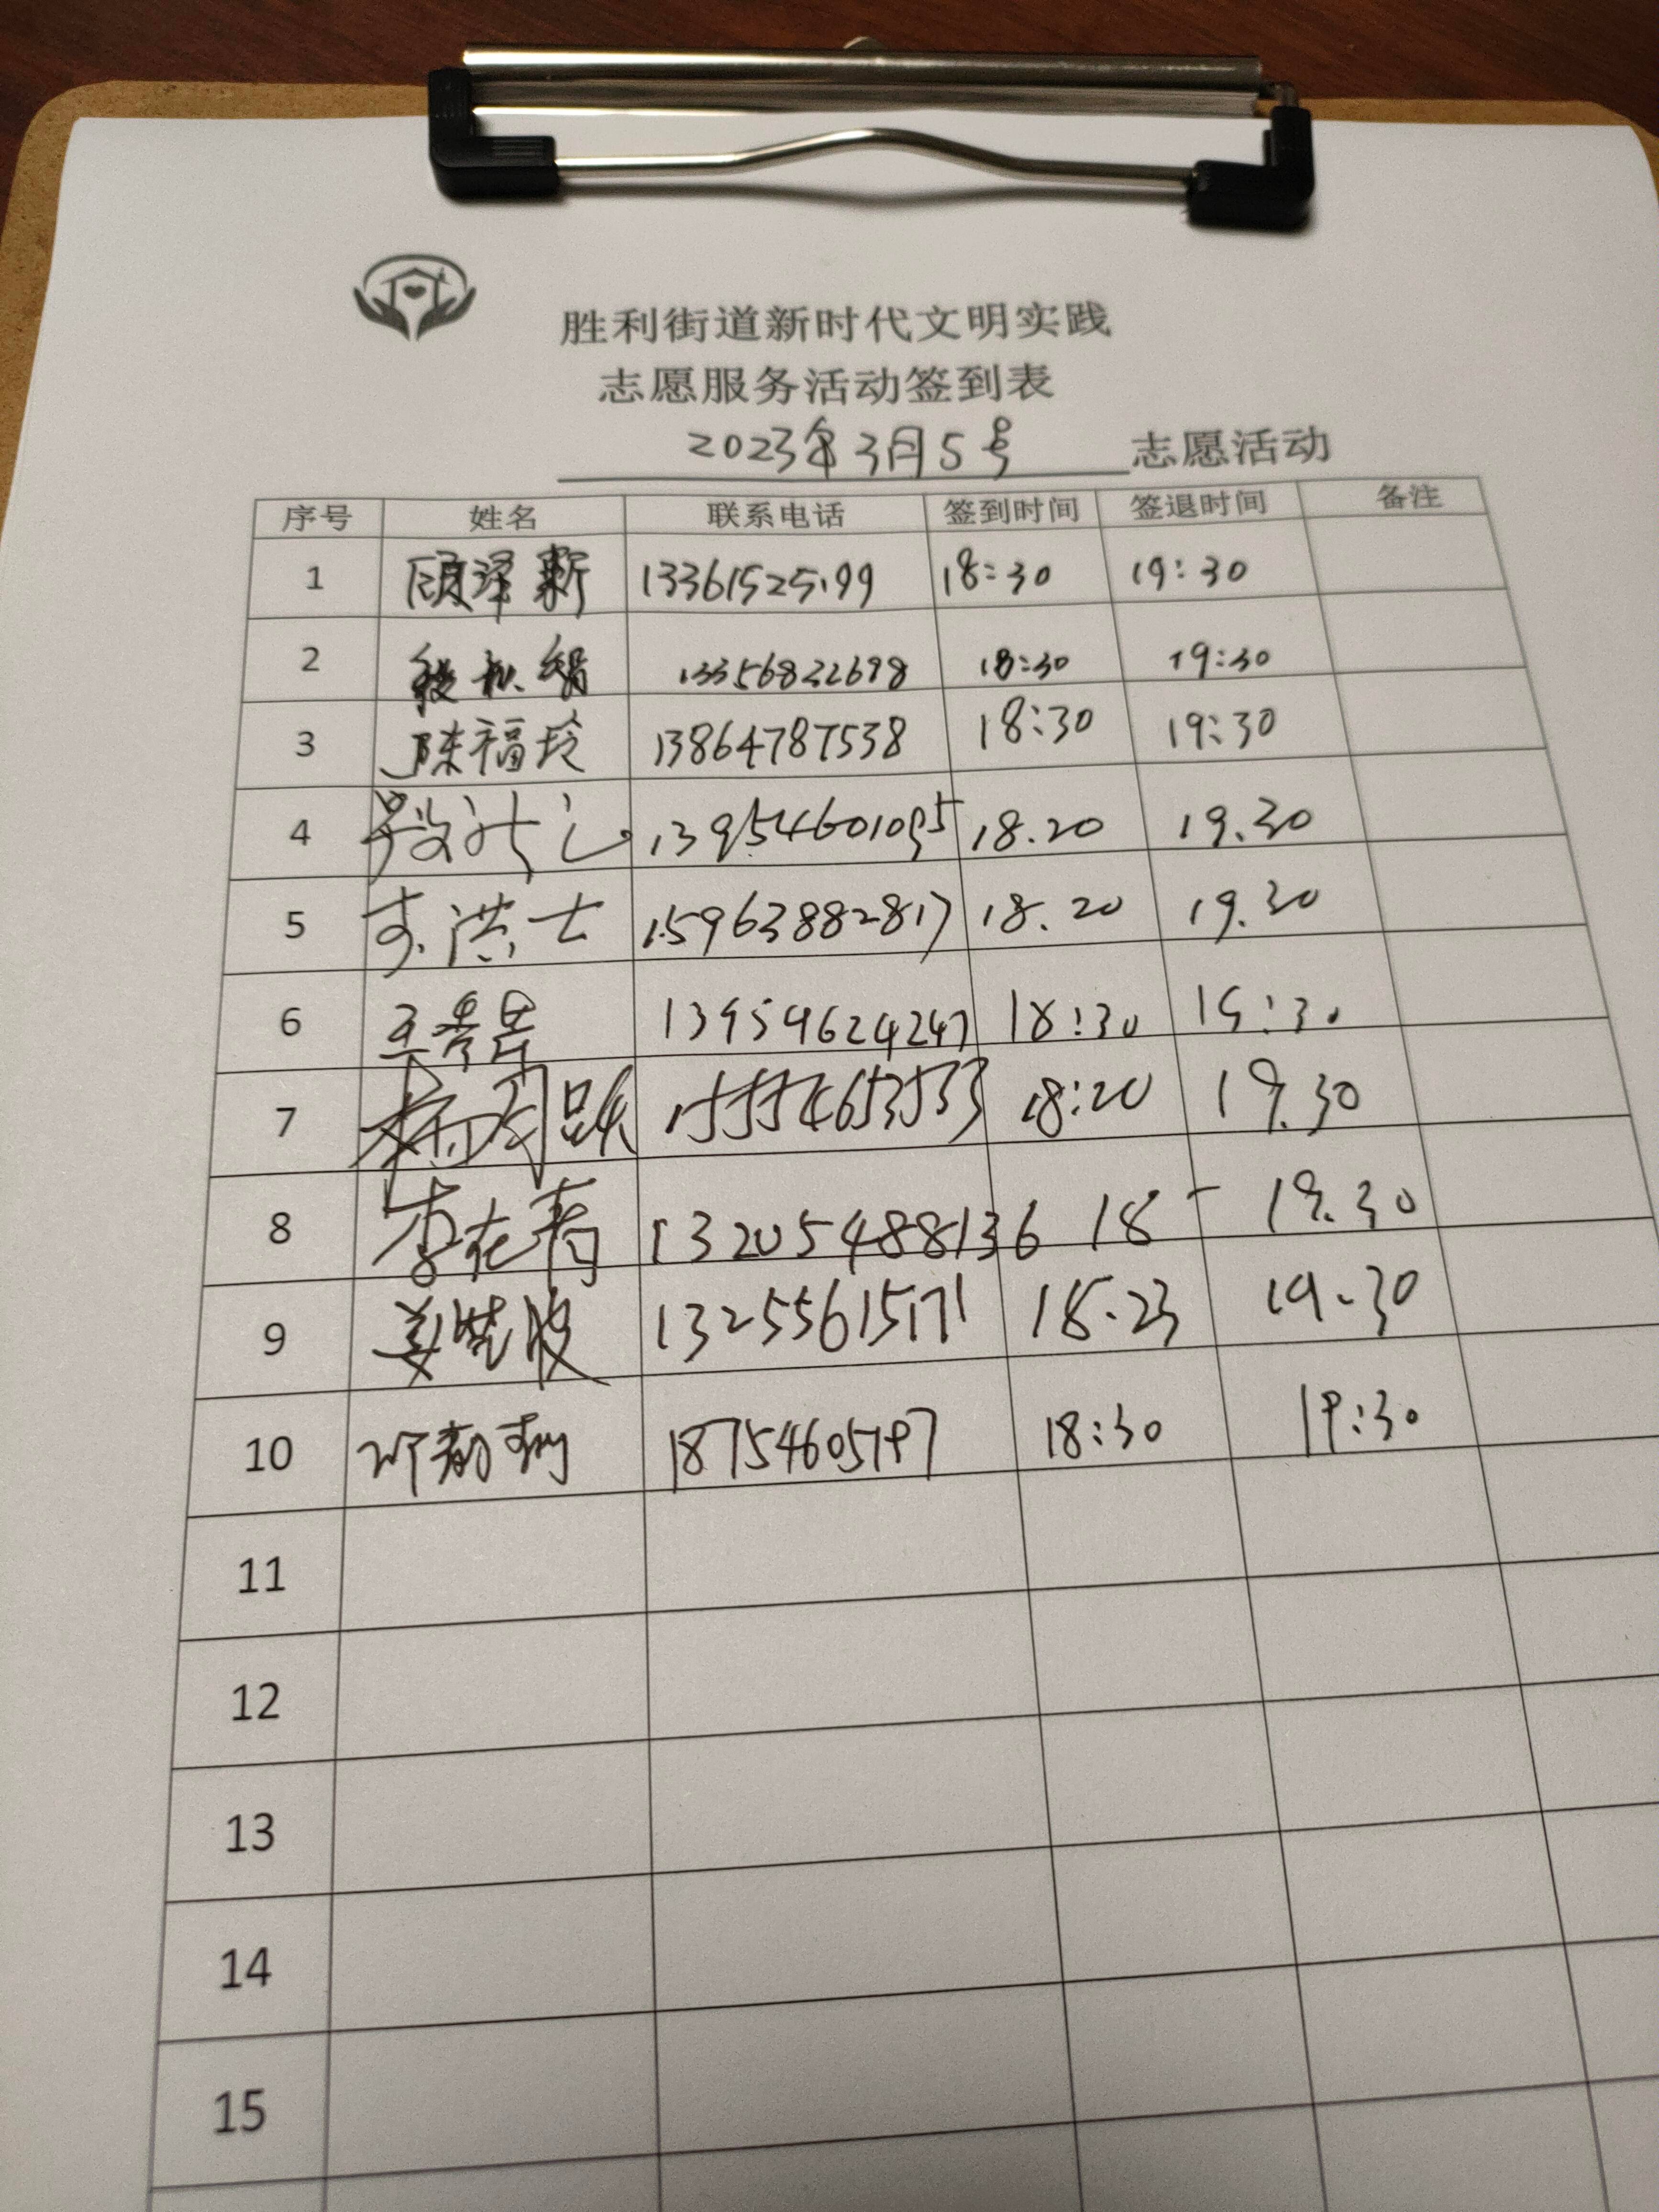 胜利街道新时代文明实践
志愿服务活动签到表
2023年3月5号 志愿活动
序号 姓名 联系电话 签到时间 签退时间 备注
1 顾泽新 13361525199 18:30 19:30
2 13356822698 18:30 19:30
3 陈福玲 13864787538 18:30 19:30
4 13954601095 18.20 19.30
5 李洪士 15963882817 18.20 19.30
6 13954624247 18:30 19:30
7 15554653533 18:20 19.30
8 李在青 13205488136 18 - 19.30
9 姜 波 13255615171 18.23 19.30
10 18754605797 18:30 19:30
11
12
13
14
15